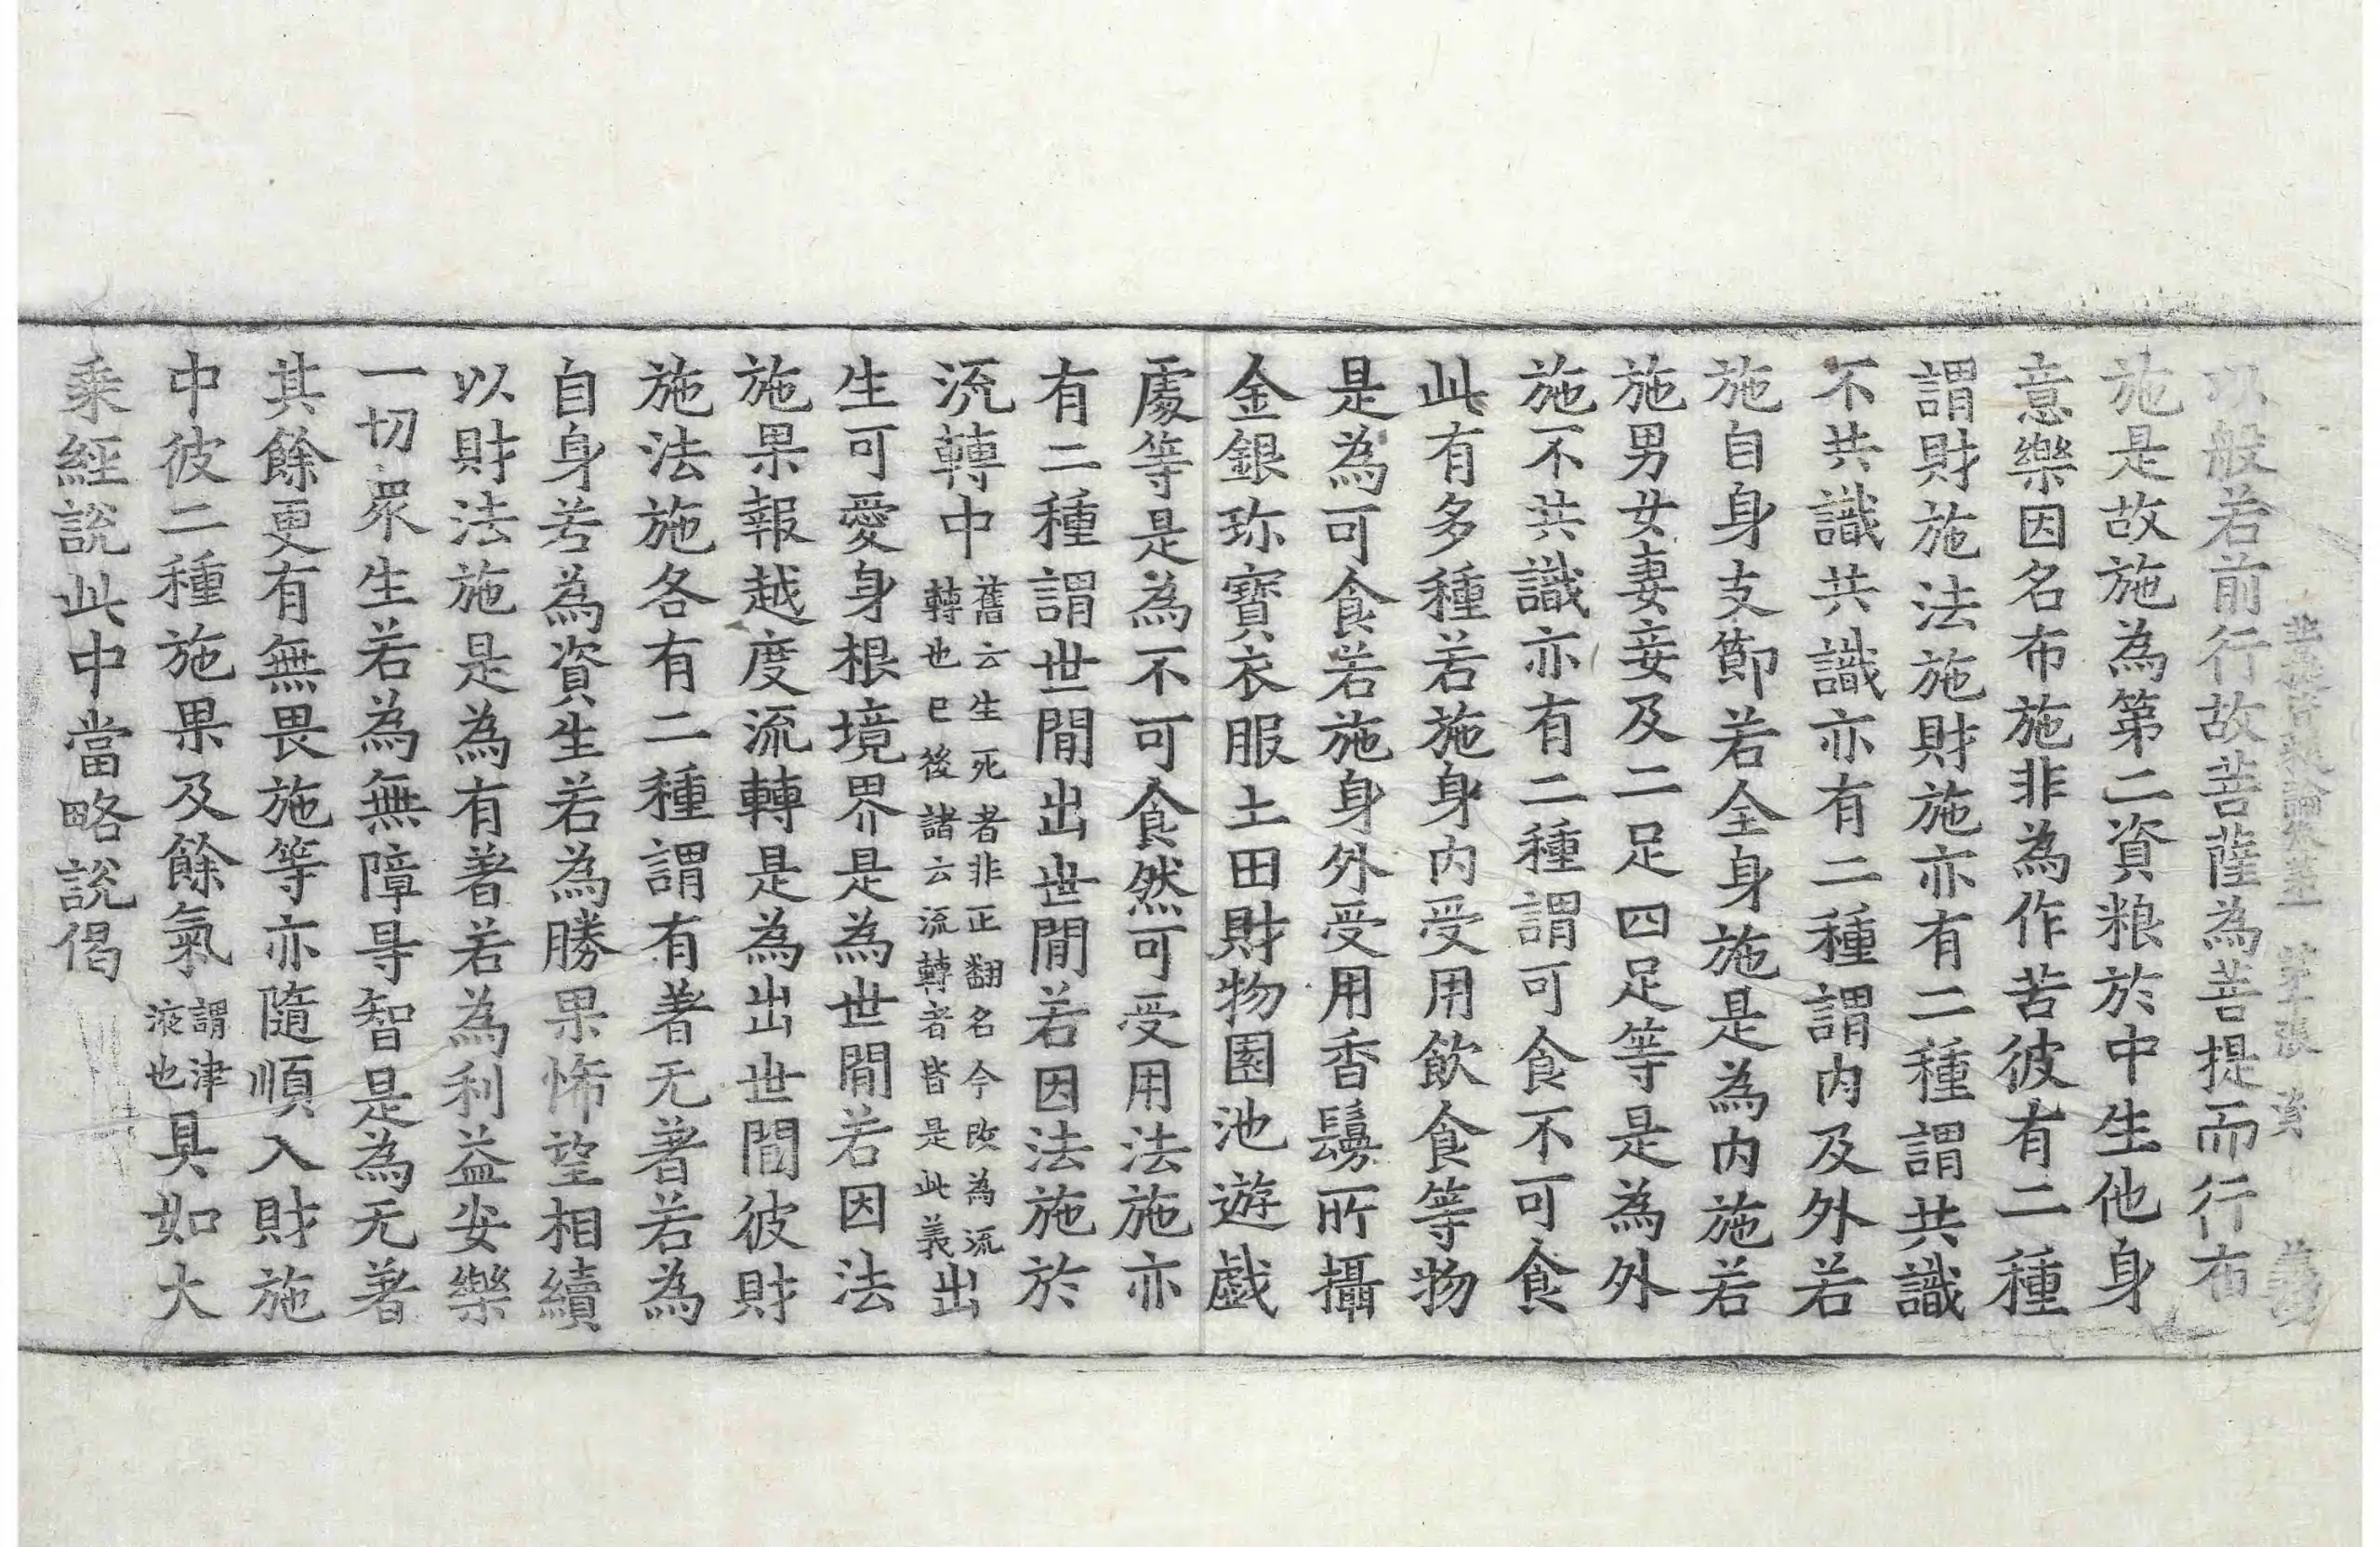 菩提資粮論卷第一 第十張 資
以般若前行故菩薩為菩提而行布
施是故施為第二資粮於中生他身
意樂因名布施非為作苦彼有二種
謂財施法施財施亦有二種謂共識
不共識共識亦有二種謂内及外若
施自身支節若全身施是為内施若
施男女妻妾及二足四足等是為外
施不共識亦有二種謂可食不可食
此有多種若施身内受用飲食等物
是為可食若施身外受用香鬘所攝
金銀珎寶衣服土田財物園池遊戲
處等是為不可食然可受用法施亦
有二種謂世間出世間若因法施於
流轉中舊云生死者非正翻名今改為流轉也已後諸云流轉者皆是此義出
生可愛身根境界是為世間若因法
施果報越度流轉是為出世間彼財
施法施各有二種謂有著无著若為
自身若為資生若為勝果悕望相續
以財法施是為有著若為利益安樂
一切眾生若為無障㝵智是為无著
其餘更有無畏施等亦隨順入財施
中彼二種施果及餘氣謂津液也具如大
乘經說此中當略說偈